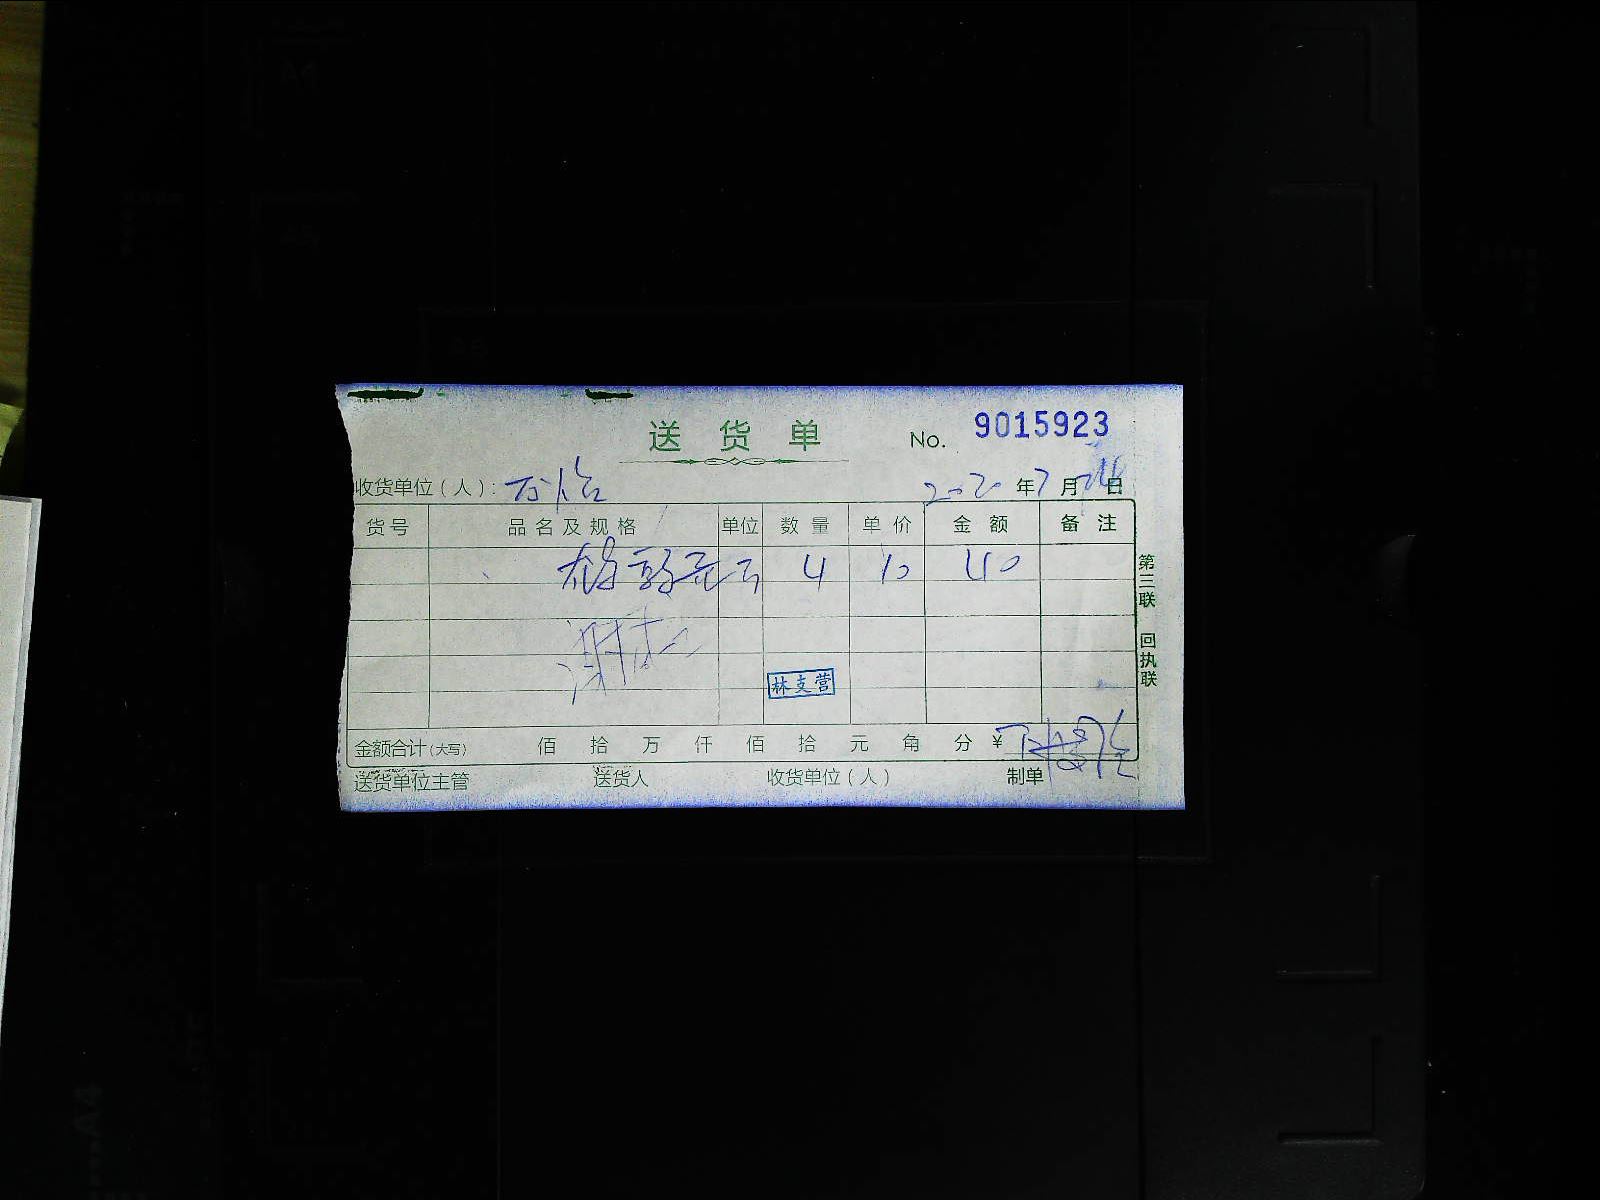 送货单 No. 9015923
收货单位（人）: 万怡 2020年7月 日
货号 品名及规格 单位 数量 单价 金额 备注
4 10 40
林支营
金额合计（大写） 佰 拾 万 仟 佰 拾 元 角 分 ¥
送货单位主管 送货人 收货单位（人） 制单
第三联 回执联